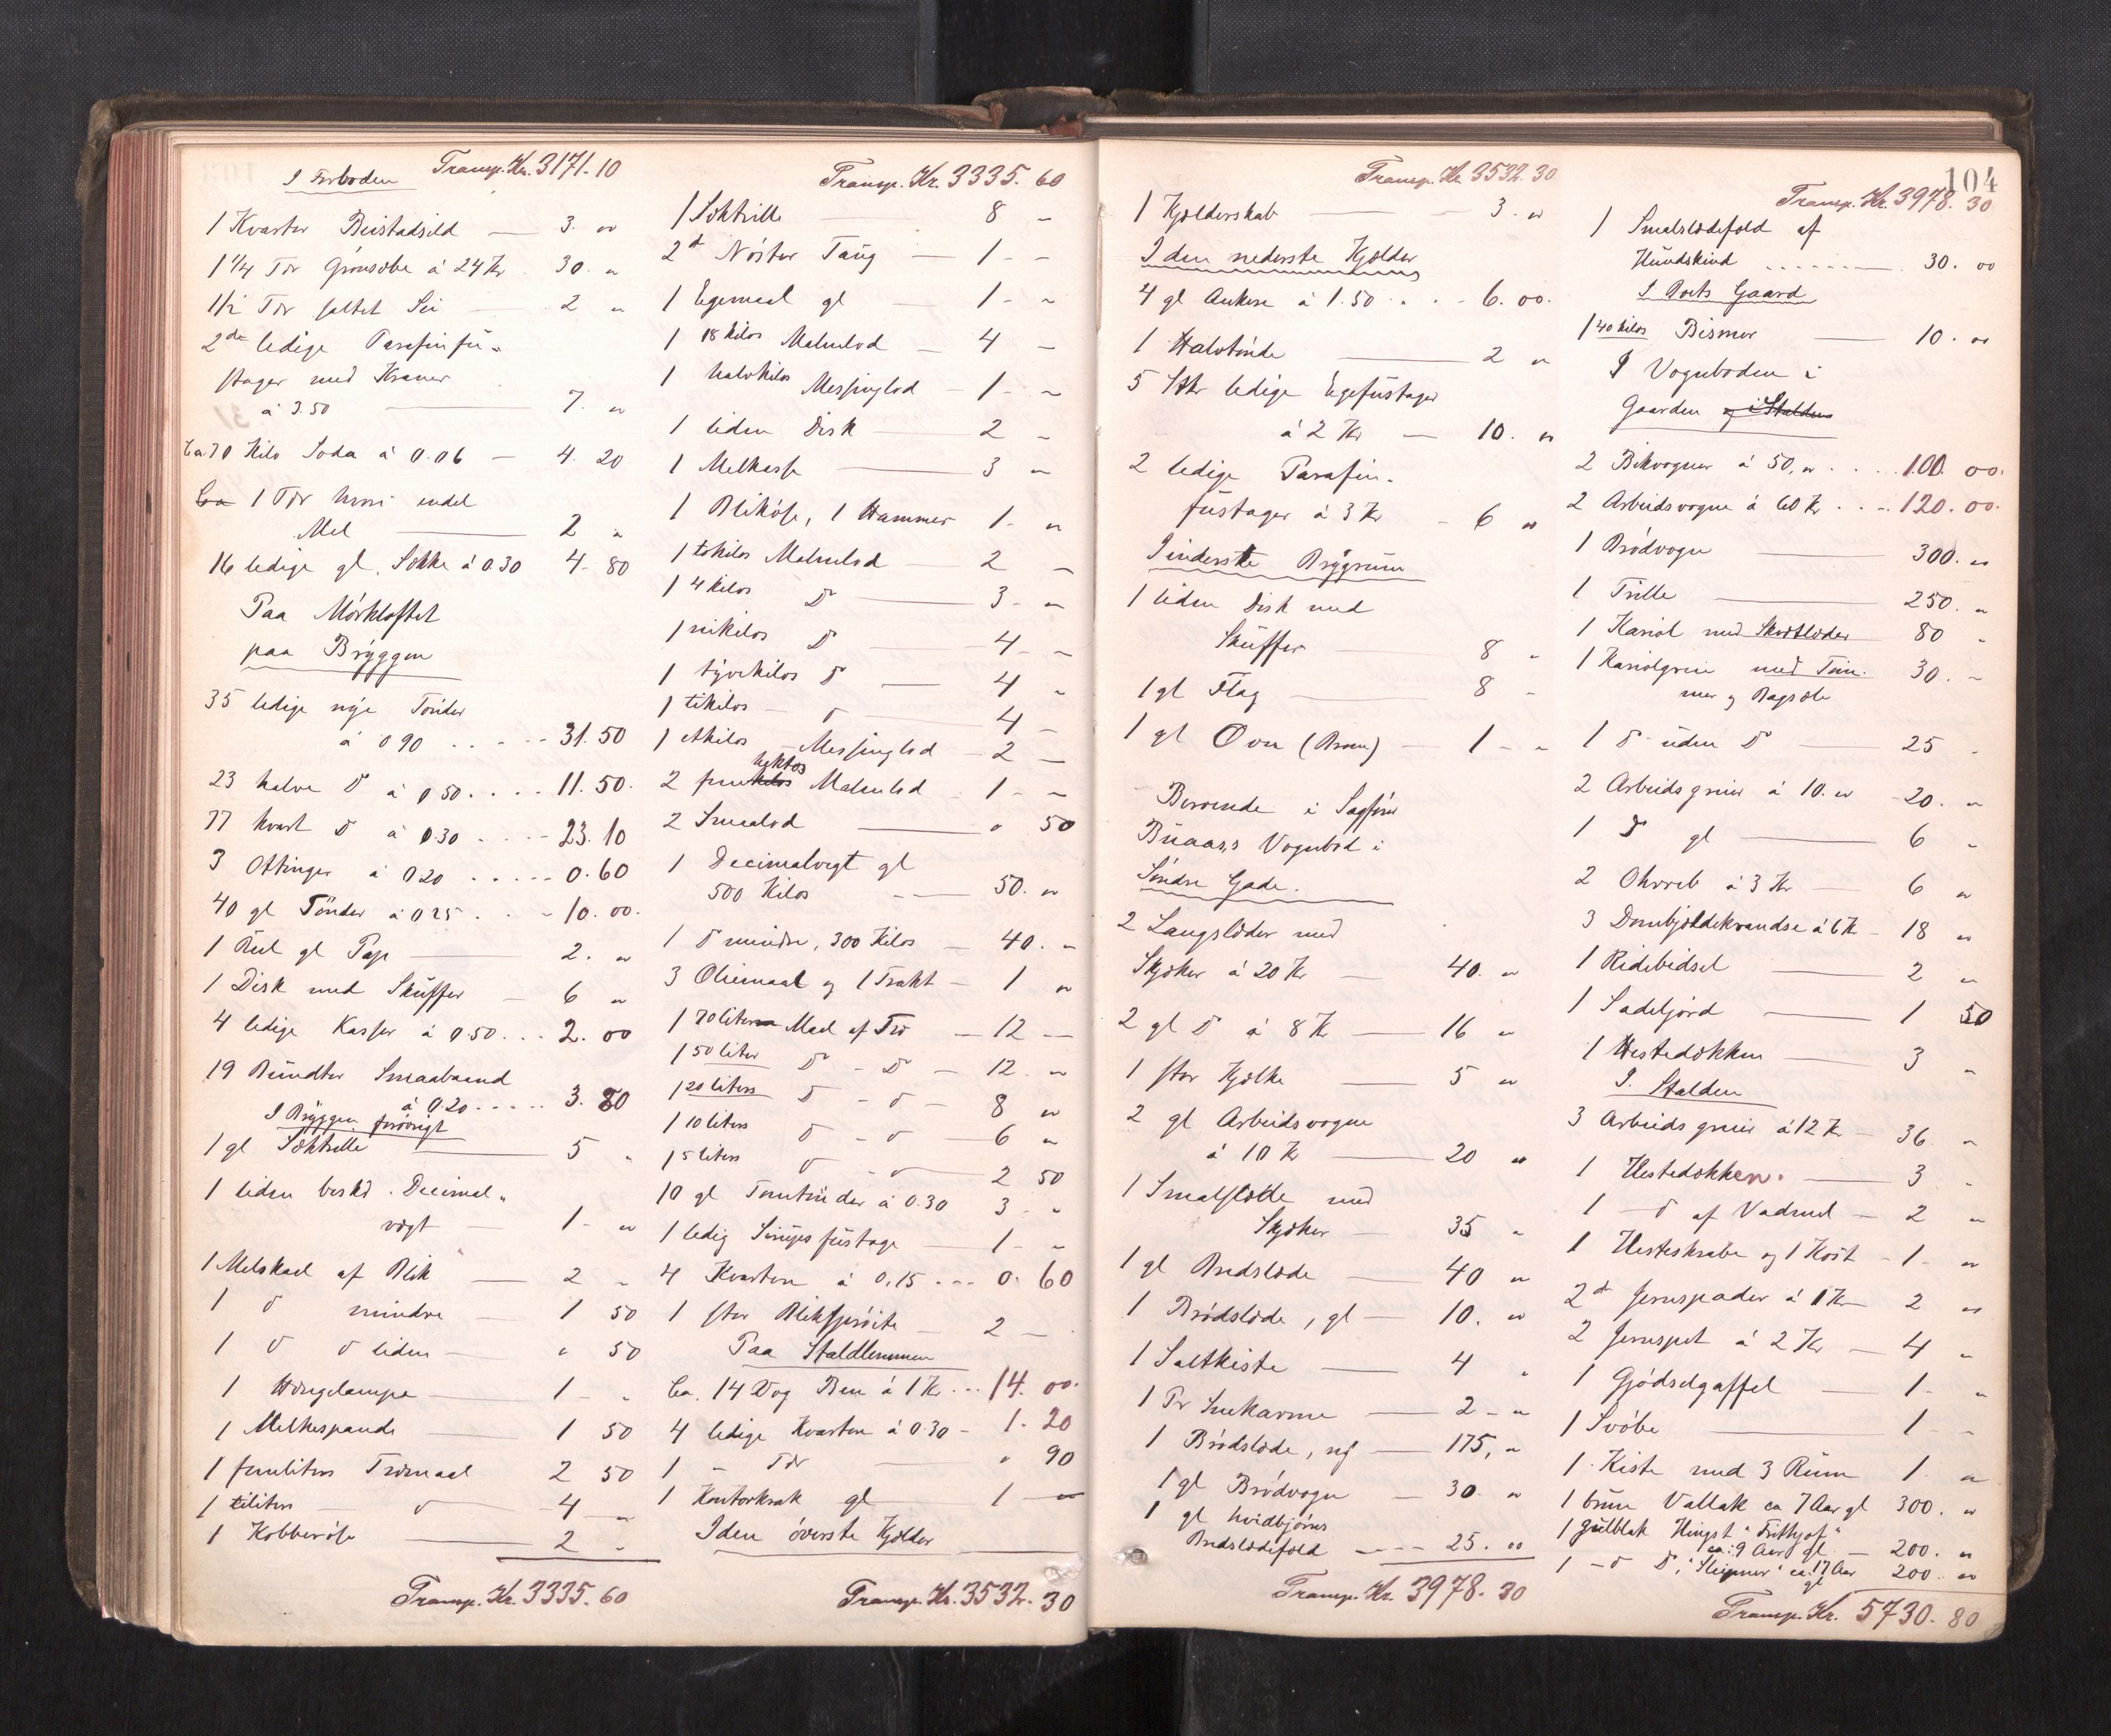 I Forboden Transp. Kr. 3171.10
1 Kvarter Beistadsild — 3. "
1 1/4 Tdr Grønsæbe à 24 Kr. 30. "
1/2 Tdr saltet Sei — 2 "
2de ledige Parafinfu-
stager med Kraner
à 3.50 — 7. "
Ca. 70 Kilo Soda à 0.06 — 4. 20
1 Tdr hvori endel
Mel — 2 "
16 ledige gl. Sække à 0.30 4. 80
Paa Mørkloftet
paa Bryggen
35 ledige nye Tønder
à 0 90 .... 31.50
23 halve D à 0 50 .... 11.50.
77 kvart D à 0.30 .... 23.10
3 Ottinger à 0 20 ..... 0.60
40 gl Tønder à 0 25 ... 10.00.
1 Rul gl Pap — 2. "
1 Disk med Skuffer — 6 "
4 ledige Kasser à 0.50 ... 2.00
19 Bundter Smaabaand
à 0.20 ..... 3.80
I Bryggen forøvrigt
1 gl Sæktrille — 5 "
1 liden besk. Decimal-
vægt — 1 - "
1 Melskaal af Blik — 2 "
1 D mindre — 1 50
1 D D liden — " 50
1 Hængelampe — 1 - "
1 Melkespande — 1 50
1 femliters Træmaal 2 50
1 tiliters D — 4 "
1 Kobberøse — 2 "
Transp. Kr. 3335.60
Transp. Kr. 3335.60
1 Sæktrille — 8 "
2d Nøster Taug — 1 - "
1 Egemaal gl — 1 - "
1 18 kilos Malmlod — 4 —
1 halvkilos Messinglod — 1 - "
1 liden Disk — 2 "
1 Melkasse — 3 "
1 Blikøse, 1 Hammer 1 - "
1 tokilos Malmlod 2 "
1 4 kilos D — 3 - "
1 nikilos D — 4 - "
1 tyvekilos D — 4 "
1 tikilos D — 4 —
1 etkilos Messinglod — 2 —
2 femkilos hektos Malmlod 1 - "
2 Smaalod — " 50
1 Decimalvegt gl
500 Kilos — 50. "
1 D mindre, 300 Kilos — 40. "
3 Oliemaal og 1 Trakt — 1 "
1 70 liters Maal af Træ — 12 —
1 50 liter D - D — 12 "
1 20 liters D - D — 8 "
1 10 liters D - D — 6 "
1 5 liters D - D — 2 50
10 gl Tomtønder à 0.30 3 - "
1 ledig Sirupsfustage — 1 - "
4 Kvarter à 0.15 ... 0. 60
1 stor Bliksprøite — 2 —
Paa Staldlemmen
Ca. 14 Vog Ben à 1 Kr ... 14. 00.
4 ledige Kvarter à 0.30 - 1. 20
1 — Tdr — " 90
1 Kontorkrak gl — 1 —
I den øverste Kjelder —
Transp. Kr. 3532.30
Transp. Kr. 3532.30
1 Kjelderskab — 3. "
I den nederste Kjelder
4 gl Ankere à 1.50 ... 6. 00.
1 Halvtønde — 2 "
5 Stkr ledige Egefustager
à 2 Kr — 10. "
2 ledige Parafin-
fustager à 3 Kr - 6 "
I inderste Brygrum
1 liden Disk med
Skuffer — 8 "
1 gl Flag — 8 -
1 gl Ovn (Brom) — 1 - "
Beroende i Sagfører
Buaas's Vognbod i
Søndre Gade.
2 Langslæder med
Skjæker à 20 Kr — 40. "
2 gl D à 8 Kr — 16 "
1 stor Kjælke — 5 "
2 gl Arbeidsvogne
à 10 Kr — 20 "
1 Smalslæde med
Skjæker — 35 "
1 gl Bredslæde — 40 "
1 Brødslæde, gl — 10. "
1 Saltkiste — 4 "
1 Pr Snekarme — 2 - "
1 Brødslæde, ny — 175, "
1 gl Brødvogn — 30 "
1 gl hvidbjørns
Bredslædefeld — 25. "
Transp. Kr. 3978.30
104
Transp. Kr. 3978.30
1 Smalslædefeld af
Hundskind ....... 30. 00
I Boets Gaard
1 40 kilos Bismer — 10. "
I Vognboden i
Gaarden og i Stalden
2 Bikvogner à 50, " ... 100. 00.
2 Arbeidsvogne à 60 Kr ... 120. 00.
1 Brødvogn — 300. "
1 Trille — 250. "
1 Kariol med Skvætlæder 80 "
1 Kariolgreie med Tøm- 30. "
mer og Bagsæle
1 D uden D — 25 -
2 Arbeidsgreier à 10. " - 20. "
1 D gl — 6 "
2 D à 3 Kr — 6 "
3 Dombjældekrandse à 6 Kr — 18 "
1 Ridebidsel — 2 "
1 Sadeljord — 1 50
1 Hestedækken — 3 "
I Stalden
3 Arbeidsgreier à 12 Kr — 36 "
1 Hestedækken. — 3 "
1 — D af Vadmel — 2 "
1 Hesteskrabe og 1 Kost - 1 - "
2d Jernspader à 1 Kr 2 "
2 Jernspet à 2 Kr — 4 "
1 Gjødselgaffel — 1 - "
1 Svøbe — 1 -
1 Kiste med 3 Rum 1. "
1 brun Vallak ca 7 Aar gl 300. "
1 gulblak Hingst "Frithjof"
ca: 9 Aar gl. — 200. "
1 - D D, "Sleipner" ca. 17 Aar gl 200. "
Transp. Kr. 5730.80